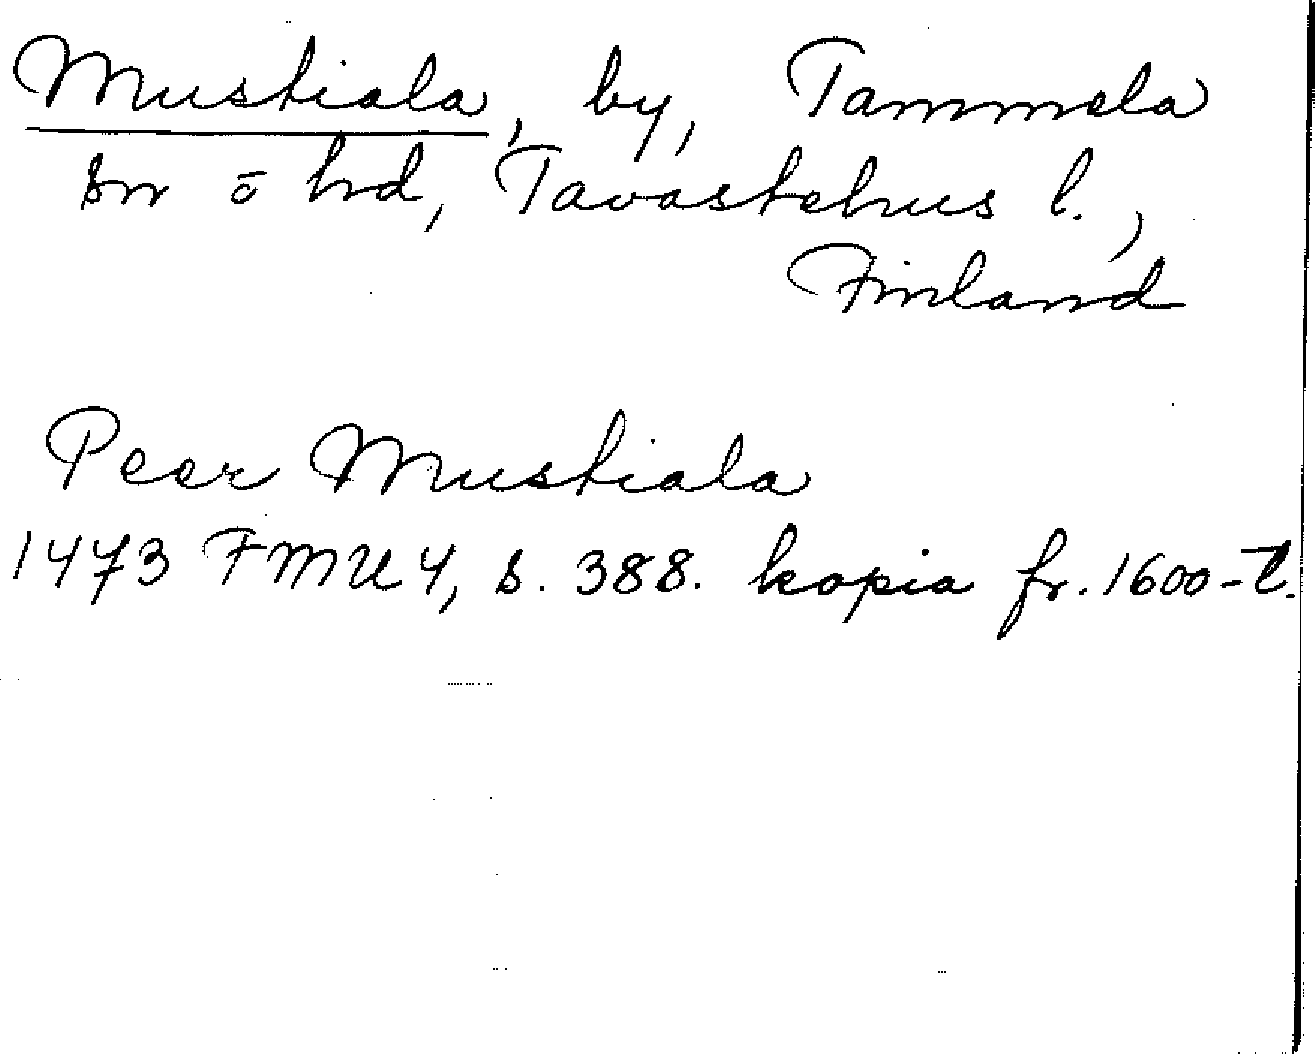 Mustiala, by, Tammela
sn o hd, Tavastehus l.,
Finland
Peer Mustiala
1473 FMU 4, s. 388. kopia fr. 1600-t.